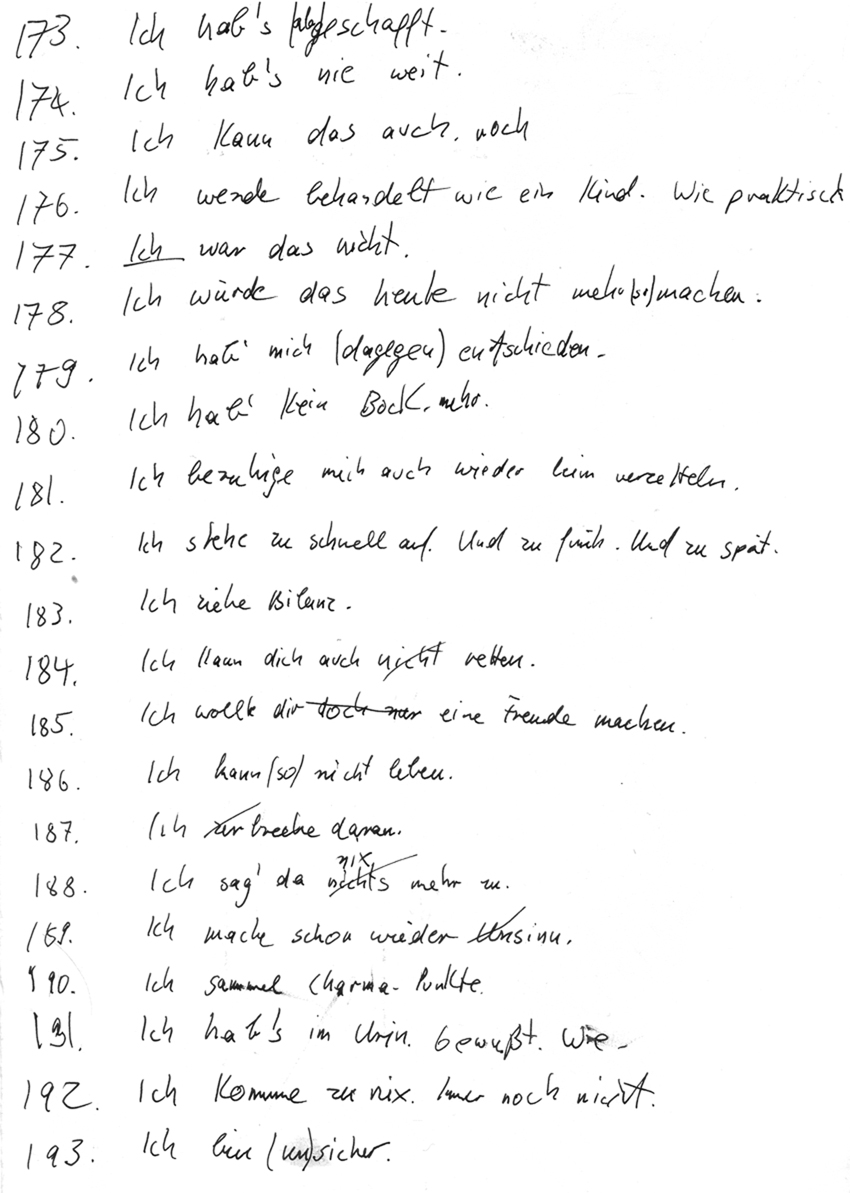 173. Ich hab's (ab)geschafft.
174. Ich hab's nie weit.
175. Ich kann das auch. noch
176. Ich werde behandelt wie ein Kind. Wie praktisch
177. Ich war das nicht.
178. Ich würde das heute nicht mehr (so) machen.
179. Ich hab' mich (dagegen) entschieden.
180. Ich hab' kein Bock. mehr.
181. Ich beruhige mich auch wieder beim verzetteln.
182. Ich stehe zu schnell auf. Und zu früh. Und zu spät.
183. Ich ziehe Bilanz.
184. Ich kann dich auch nicht retten.
185. Ich wollte dir doch nur eine Freude machen.
186. Ich kann (so) nicht leben.
187. Ich zerbreche daran.
188. Ich sag' da nichts nix mehr zu.
189. Ich mache schon wieder Unsinn.
190. Ich sammel Charma-Punkte.
191. Ich hab's im Urin. bewußt. Wie-
192. Ich komme zu nix. Immer noch nicht.
193. Ich bin (un)sicher.